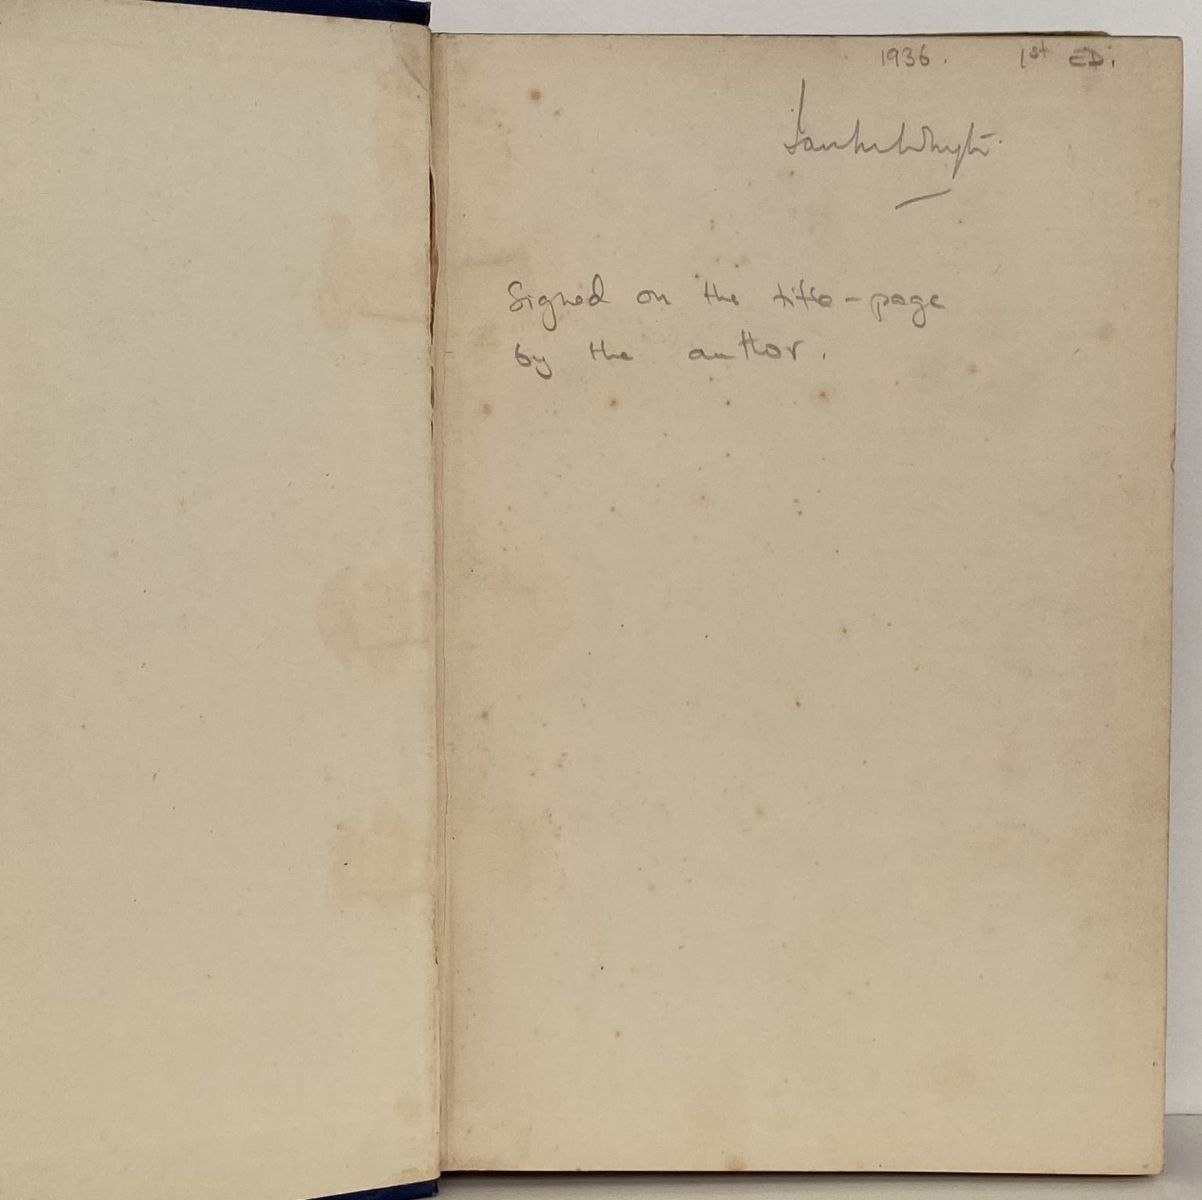 1936. 1st ED:
Signed on the title-page
by the author.